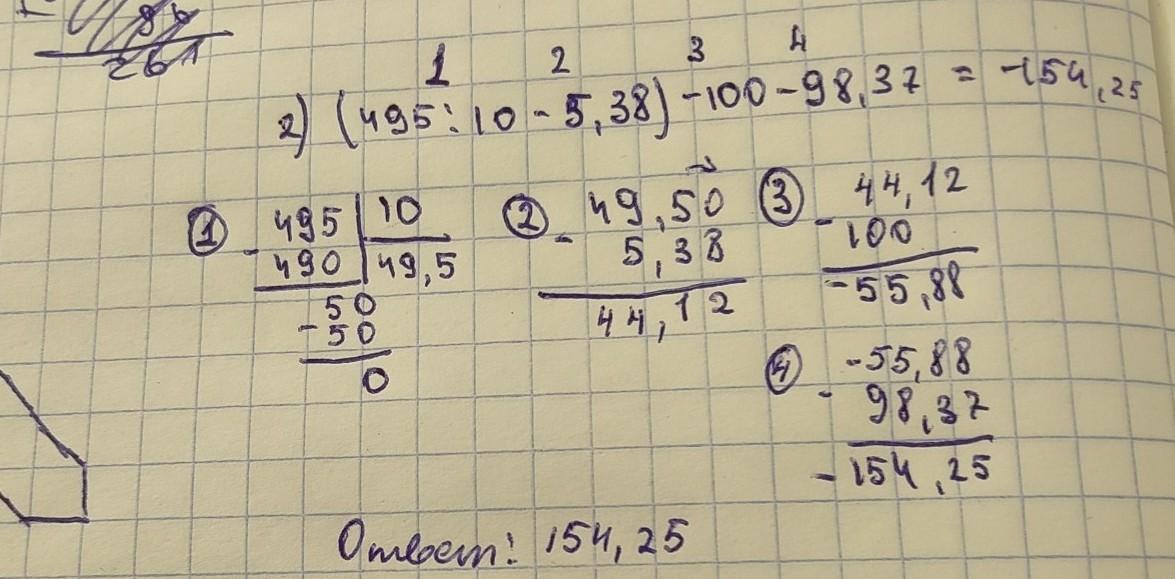 1 2 3 4
2) (495:10 - 5,38) - 100 - 98,37 = -154,25
① 495 | 10
- 490 | 49,5
50
- 50
0
② 49,50
- 5,38
44,12
③ 44,12
- 100
-55,88
④ -55,88
- 98,37
-154,25
Ответ: 154,25